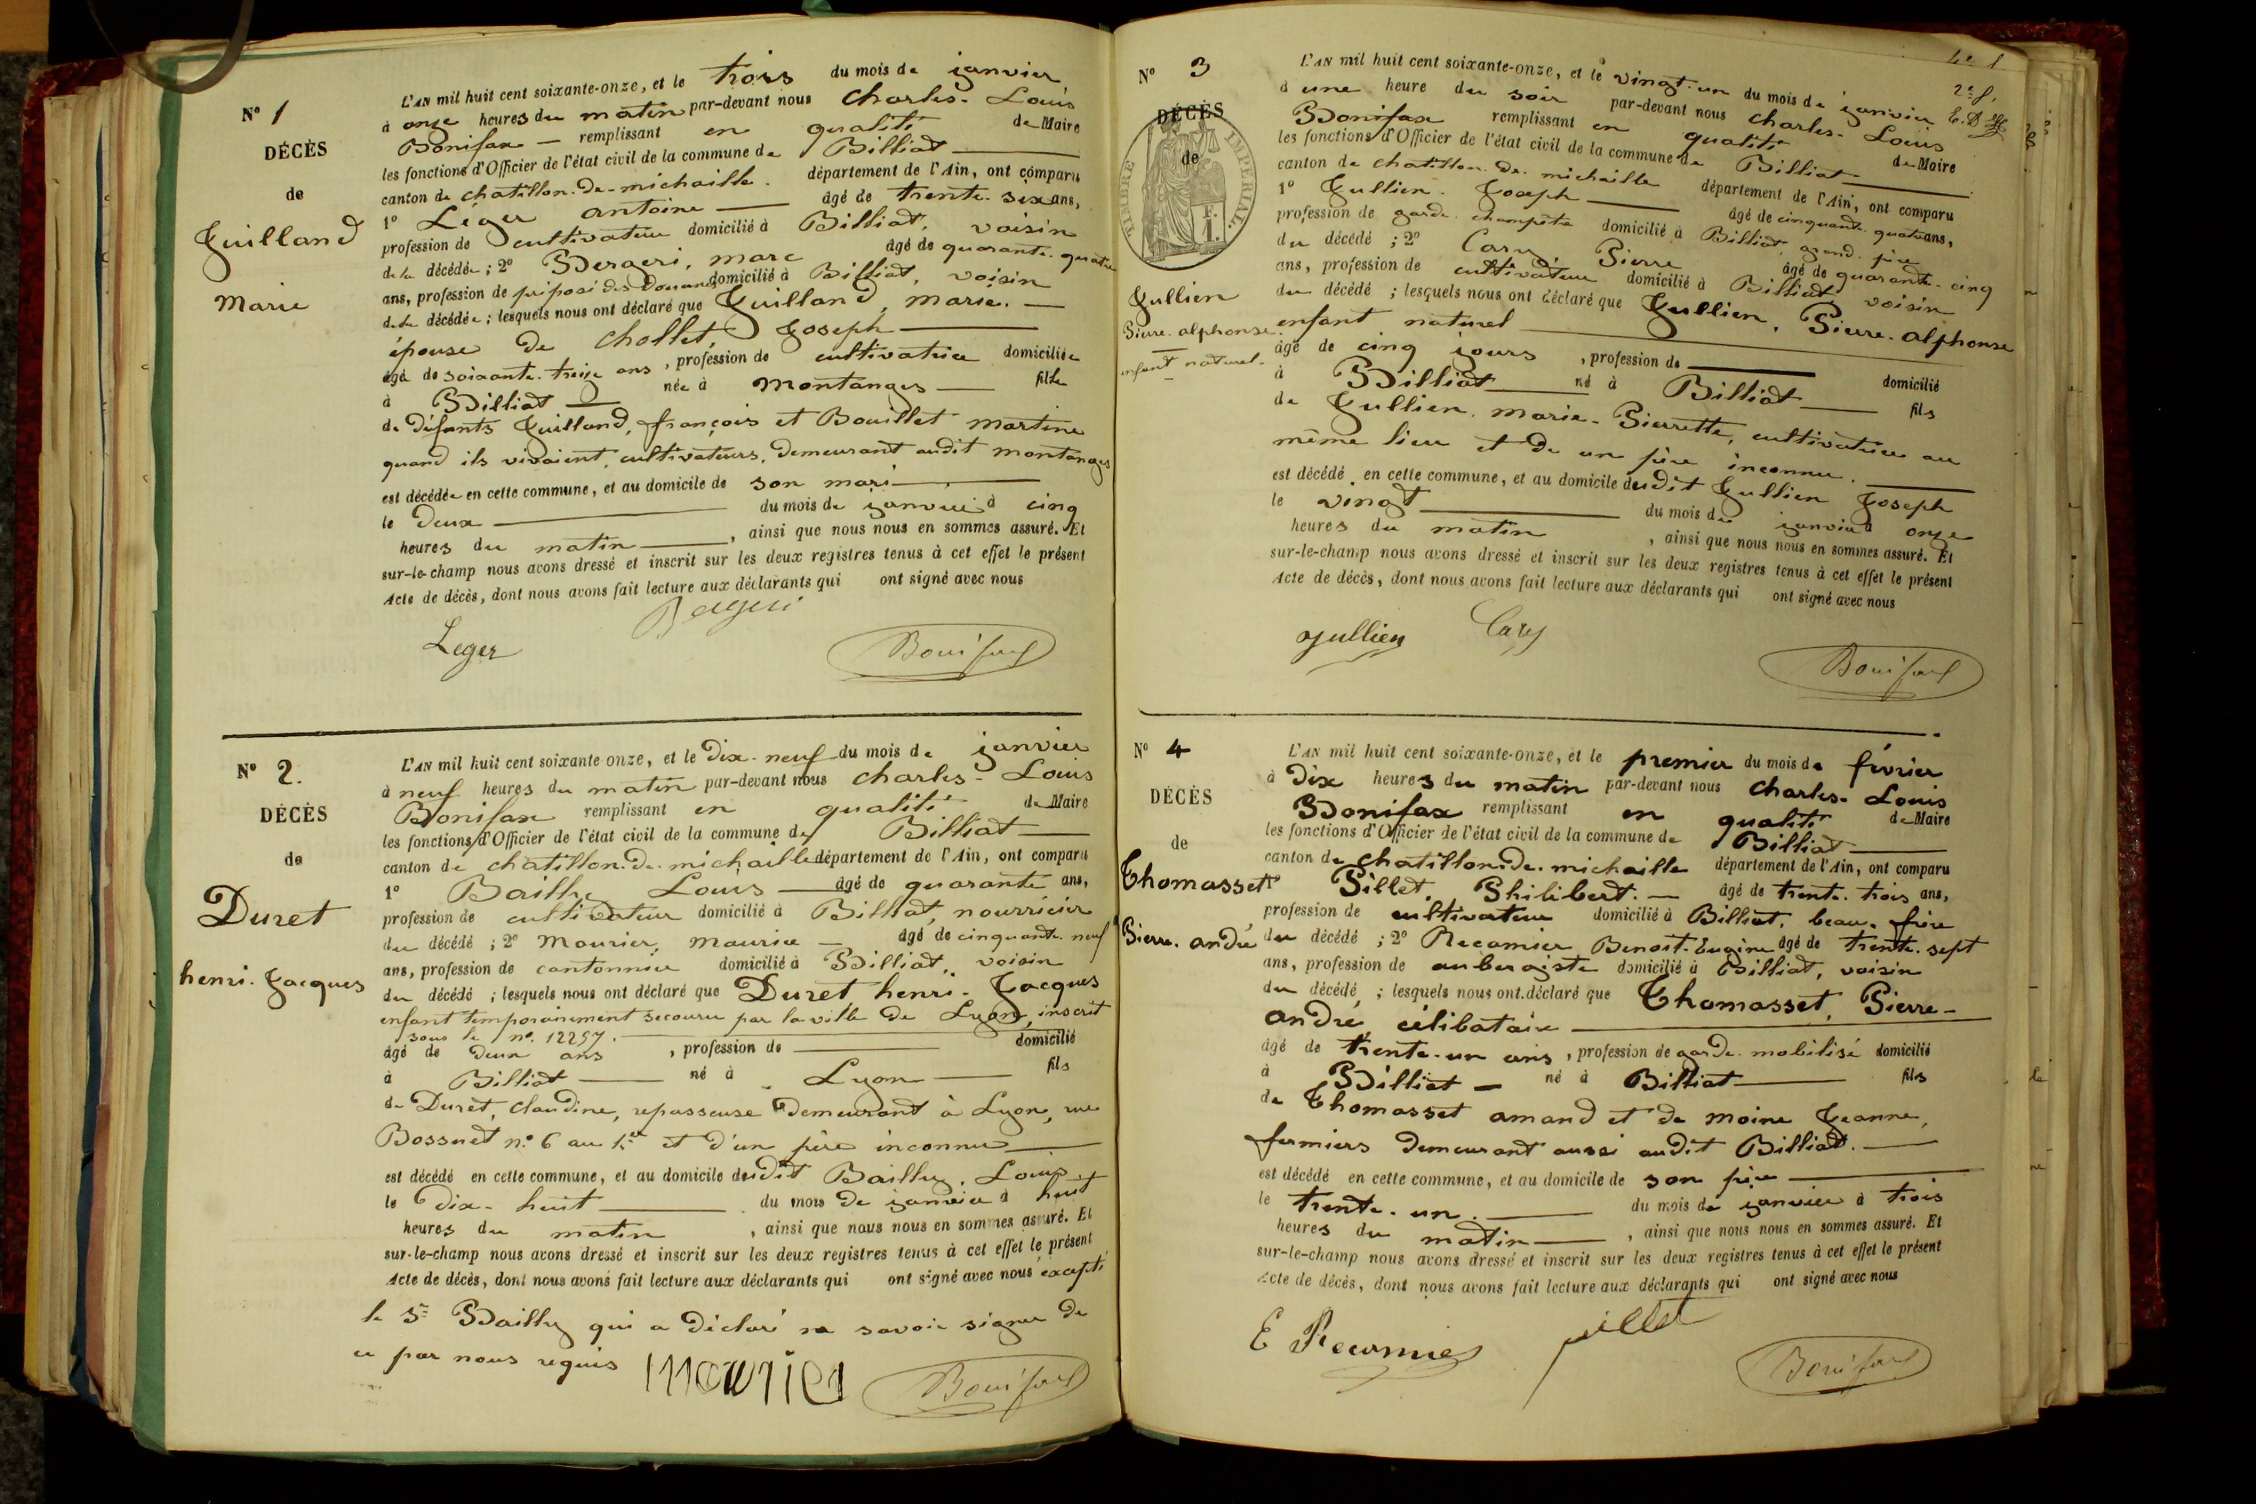 N° 1
DÉCÈS
de
Guilland
Marie
L'AN mil huit cent soixante-onze, et le trois du mois de janvier
à onze heures du matin par-devant nous Charles-Louis
Bonifax — remplissant en qualité de Maire
les fonctions d'Officier de l'état civil de la commune de Billiat
canton de chatillon-de-michaille. département de l'Ain, ont comparu
1° Léger antoine âgé de trente-six ans,
profession de cultivateur domicilié à Billiat, voisin
de la décédée ; 2° Bergeri, marc âgé de quarante-quatre
ans, profession de préposé des Douanes domicilié à Billiat, voisin
de la décédée ; lesquels nous ont déclaré que Guilland, marie. —
épouse de Chollet, Joseph
âgé de soixante-treize ans, profession de cultivatrice domiciliée
à Billiat née à Montanges fille
de Défunts Guilland, françois et Bouillet martine
quand ils vivaient, cultivateurs, demeurant audit montanges
est décédée en cette commune, et au domicile de son mari
le deux du mois de janvier à cinq
heures du matin, ainsi que nous nous en sommes assuré. Et
sur-le-champ nous avons dressé et inscrit sur les deux registres tenus à cet effet le présent
Acte de décès, dont nous avons fait lecture aux déclarants qui ont signé avec nous
Leger Bergeri Bonifax
N° 2.
DÉCÈS
de
Duret
henri-Jacques
L'AN mil huit cent soixante onze, et le Dix-neuf du mois de janvier
à neuf heures du matin par-devant nous Charles-Louis
Bonifax remplissant en qualité de Maire
les fonctions d'Officier de l'état civil de la commune de Billiat
canton de chatillon-de-michaille département de l'Ain, ont comparu
1° Bailly Louis âgé de quarante ans,
profession de cultivateur domicilié à Billiat, nourricier
du décédé ; 2° Mourier, Maurice âgé de cinquante-neuf
ans, profession de cantonnier domicilié à Billiat, voisin
du décédé ; lesquels nous ont déclaré que Duret, henri-Jacques
enfant temporairement secouru par la ville de Lyon, inscrit
sous le n° 12257.
âgé de deux ans, profession de domicilié
à Billiat né à Lyon fils
de Duret, Claudine, repasseuse demeurant à Lyon, rue
Bossuet n° 6 au 1er et d'un père inconnu
est décédé en cette commune, et au domicile dudit Bailly, Louis
le dix-huit du mois de janvier à huit
heures du matin, ainsi que nous nous en sommes assuré. Et
sur-le-champ nous avons dressé et inscrit sur les deux registres tenus à cet effet le présent
Acte de décès, dont nous avons fait lecture aux déclarants qui ont signé avec nous excepté
le Sr Bailly qui a déclaré ne savoir signer de
ce par nous requis Bonifax
N° 3
DÉCÈS
de
TIMBRE IMPÉRIAL
Gullien
Pierre-alphonse
enfant naturel
L'AN mil huit cent soixante-onze, et le vingt-un du mois de janvier
à une heure du soir par-devant nous Charles-Louis
Bonifax remplissant en qualité de Maire
les fonctions d'Officier de l'état civil de la commune de Billiat
canton de chatillon-de-michaille département de l'Ain, ont comparu
1° Gullien. Joseph âgé de cinquante-quatre ans,
profession de garde-champêtre domicilié à Billiat, grand-père
du décédé ; 2° Cary Pierre âgé de quarante-cinq
ans, profession de cultivateur domicilié à Billiat, voisin
du décédé ; lesquels nous ont déclaré que Gullien, Pierre-alphonse
enfant naturel
âgé de cinq jours, profession de domicilié
à Billiat né à Billiat fils
de Gullien, marie-Pierrette, cultivatrice au
même lieu et de un père inconnu.
est décédé en cette commune, et au domicile dudit Gullien Joseph
le vingt du mois de janvier à onze
heures du matin, ainsi que nous nous en sommes assuré. Et
sur-le-champ nous avons dressé et inscrit sur les deux registres tenus à cet effet le présent
Acte de décès, dont nous avons fait lecture aux déclarants qui ont signé avec nous
Gullien Cary Bonifax
N° 4
DÉCÈS
de
Thomasset
Pierre-andré
L'AN mil huit cent soixante-onze, et le premier du mois de février
à dix heures du matin par-devant nous Charles-Louis
Bonifax remplissant en qualité de Maire
les fonctions d'Officier de l'état civil de la commune de Billiat
canton de chatillon-de-michaille département de l'Ain, ont comparu
1° Pillet, Philibert. — âgé de trente-trois ans,
profession de cultivateur domicilié à Billiat, beau-frère
du décédé ; 2° Recamier Benoit-Eugène âgé de trente-sept
ans, profession de aubergiste domicilié à Billiat, voisin
du décédé ; lesquels nous ont déclaré que Thomasset, Pierre-
andré, célibataire
âgé de trente-un ans, profession de garde-mobilisé domicilié
à Billiat — né à Billiat fils
de Thomasset amand et de Moine Jeanne,
fermiers demeurant aussi audit Billiat.
est décédé en cette commune, et au domicile de son père
le trente-un. du mois de janvier à trois
heures du matin, ainsi que nous nous en sommes assuré. Et
sur-le-champ nous avons dressé et inscrit sur les deux registres tenus à cet effet le présent
Acte de décès, dont nous avons fait lecture aux déclarants qui ont signé avec nous
E Recamier pillet Bonifax